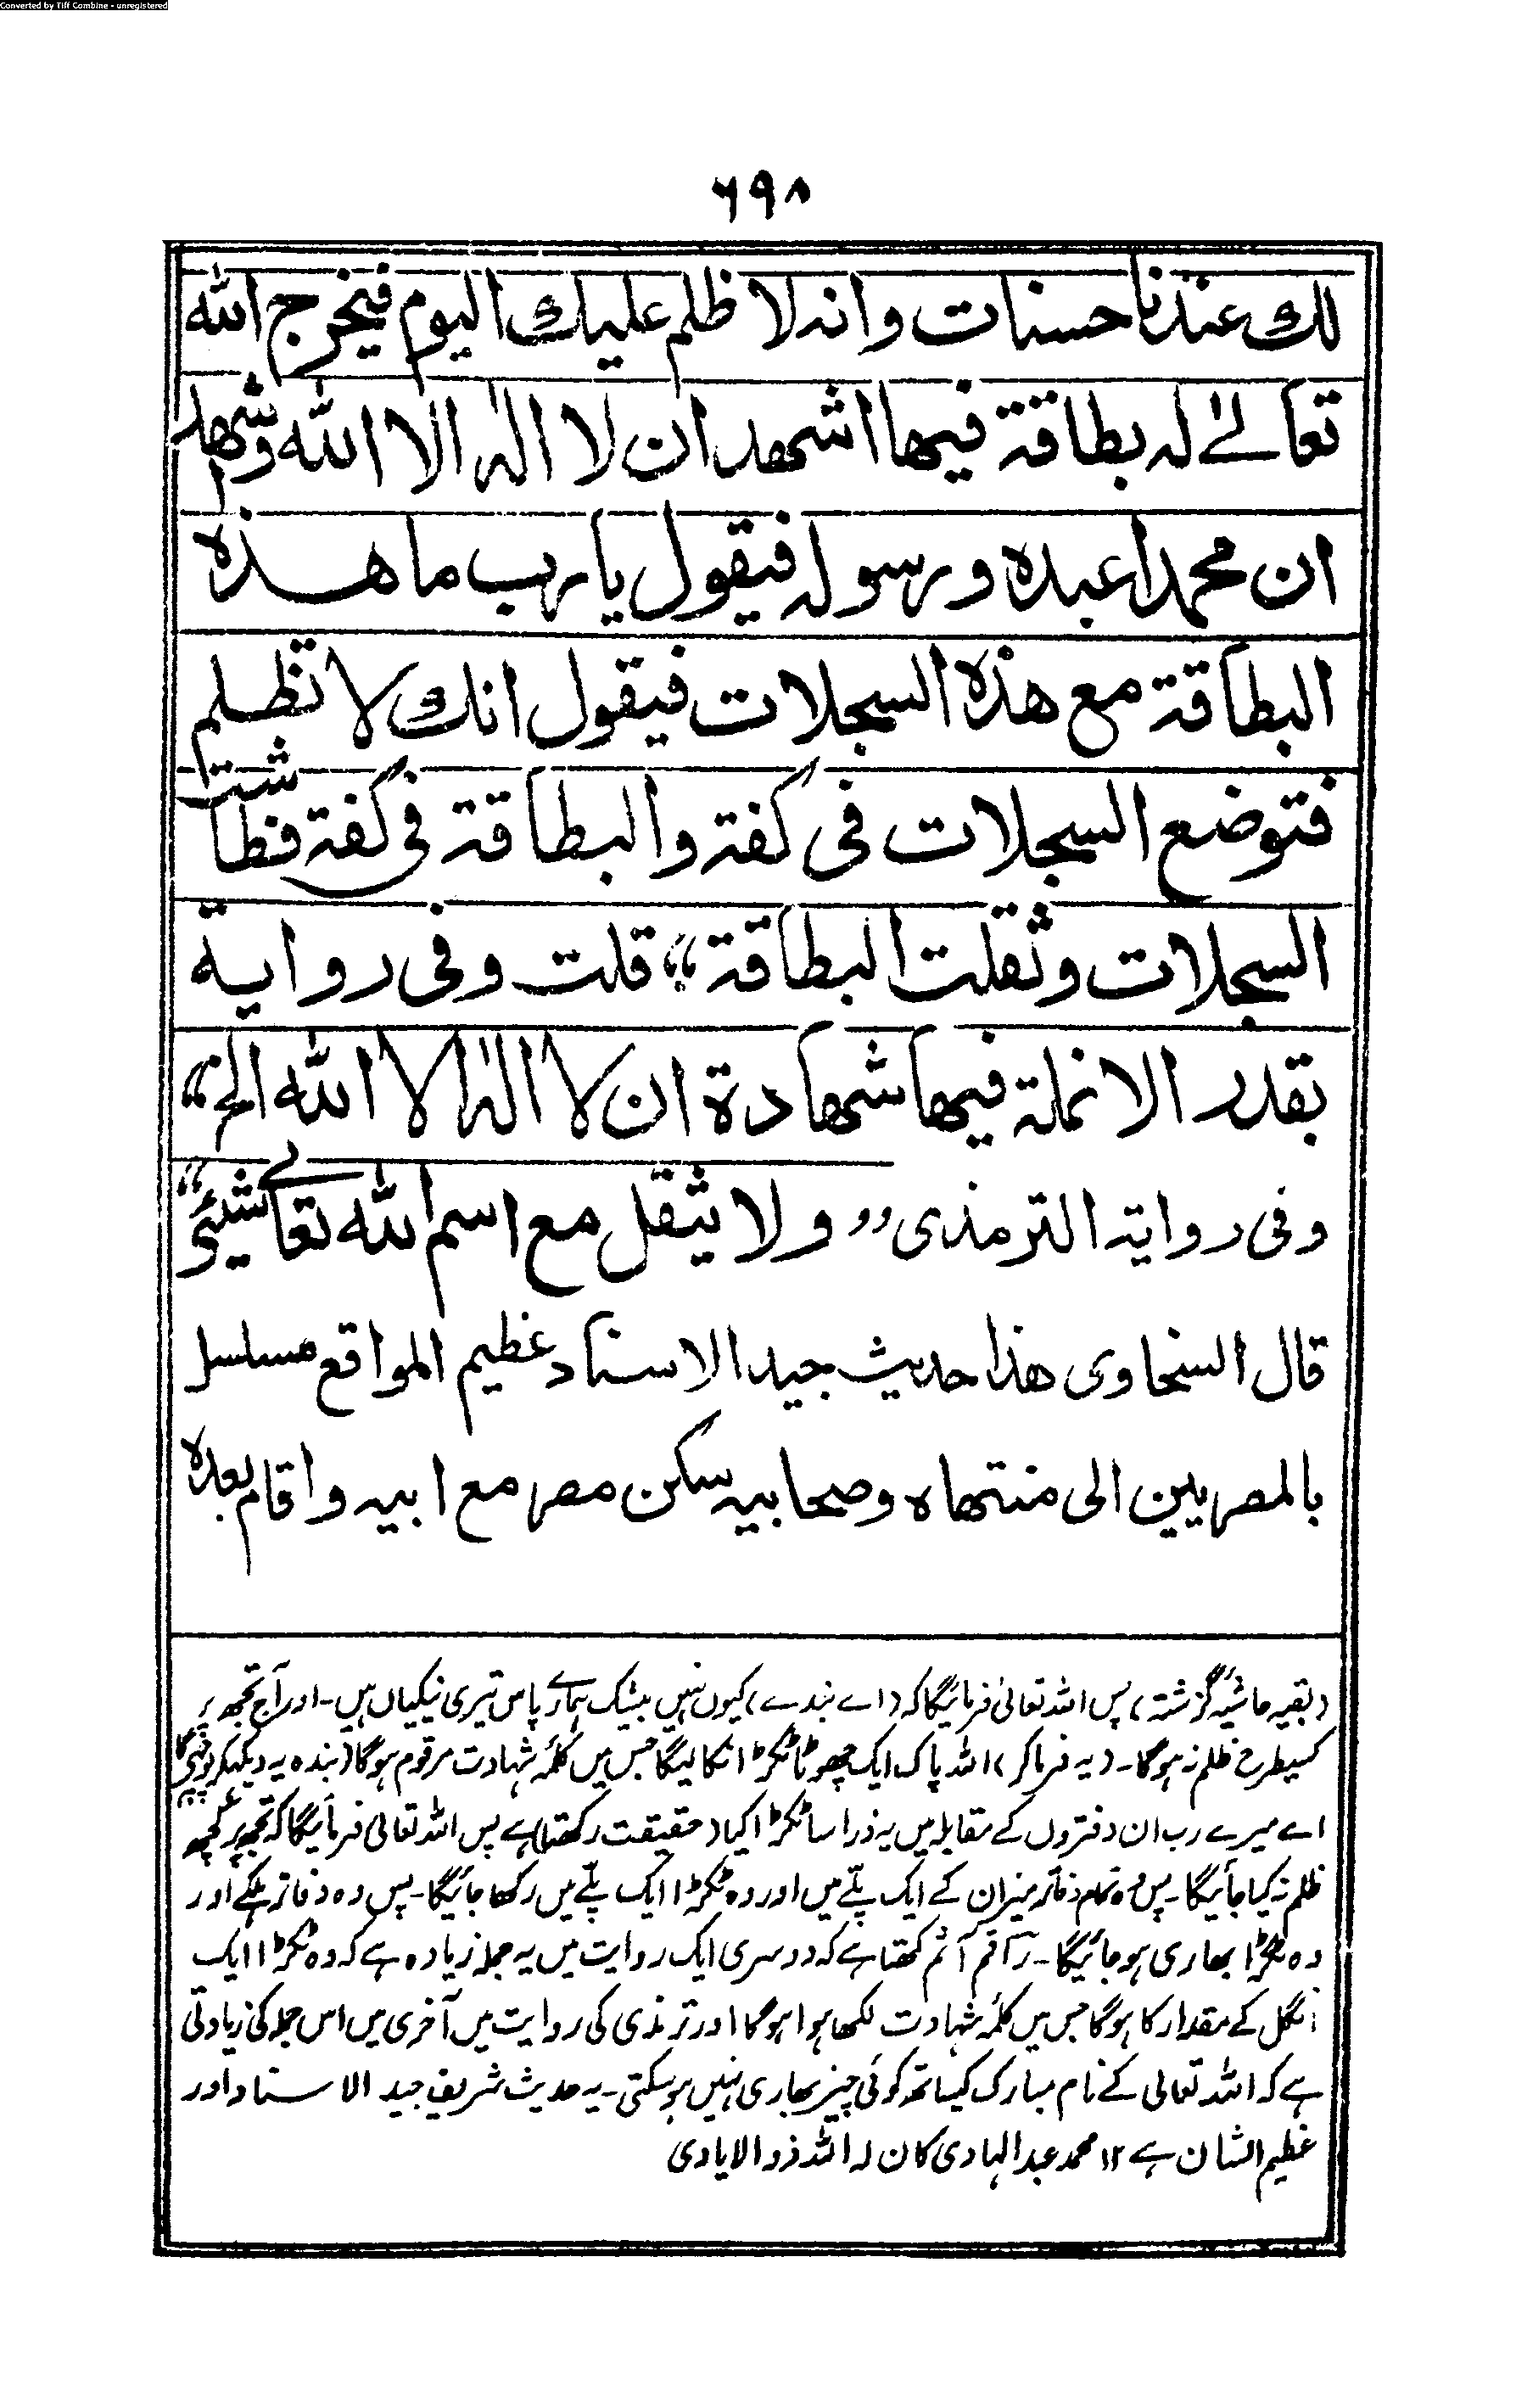 Converted by Tiff Combine - unregistered
٦٩٨
لك عندنا حسنات وانه لا ظلم عليك اليوم فيخرج الله
تعالى له بطاقة فيها اشهد ان لا اله الا الله واشهد
ان محمدا عبده ورسوله فيقول يارب ما هذه
البطاقة مع هذه السجلات فيقول انك لا تظلم
فتوضع السجلات فى كفة والبطاقة فى كفة فطاشت
السجلات وثقلت البطاقة “ قلت وفى رواية
بقدر الانملة فيها شهادة ان لا اله الا الله الخ “
وفى رواية الترمذى ”ولا يثقل مع اسم الله تعالى شيئ“
قال السخاوى هذا حديث جيد الاسناد عظيم المواقع مسلسل
بالمصريين الى منتهاه وصحابيه سكن مصر مع ابيه واقام بعده
(بقيہ حاشیۂ گزشتہ) پس اللہ تعالیٰ فرمائیگا کہ (اے بندے) کیوں نہیں بیشک ہمارے پاس تیری نیکیاں ہیں۔ اور آج تجھ پر
کسیطرح ظلم نہ ہوگا۔ (یہ فرماکر) اللہ پاک ایک چھوٹا ٹکڑا نکالیگا جس میں کلمۂ شہادت مرقوم ہوگا (بندہ یہ دیکھکر پوچھیگا
اے میرے رب ان دفتروں کے مقابلہ میں یہ ذرا سا ٹکڑا کیا (حقیقت رکھتا) ہے پس اللہ تعالیٰ فرمائیگا کہ تجھ پر کچھ
ظلم نہ کیا جائیگا۔ پس وہ تمام دفاتر میزان کے ایک پلّے میں اور وہ ٹکڑا ایک پلّے میں رکھا جائیگا۔ پس وہ دفاتر ہلکے اور
وہ ٹکڑا بھاری ہو جائیگا۔ راقم آثم کہتا ہے کہ دوسری ایک روایت میں یہ جملہ زیادہ ہے کہ وہ ٹکڑا ایک
انگل کے مقدار کا ہوگا جس میں کلمۂ شہادت لکھا ہوا ہوگا اور ترمذی کی روایت میں آخری میں اس جملہ کی زیادتی
ہے کہ اللہ تعالیٰ کے نام مبارک کیساتھ کوئی چیز بھاری نہیں ہوسکتی۔ یہ حدیث شریف جید الاسناد اور
عظیم الشان ہے ۱۲ محمد عبدالہادی کان لہ اللہ ذو الایادی